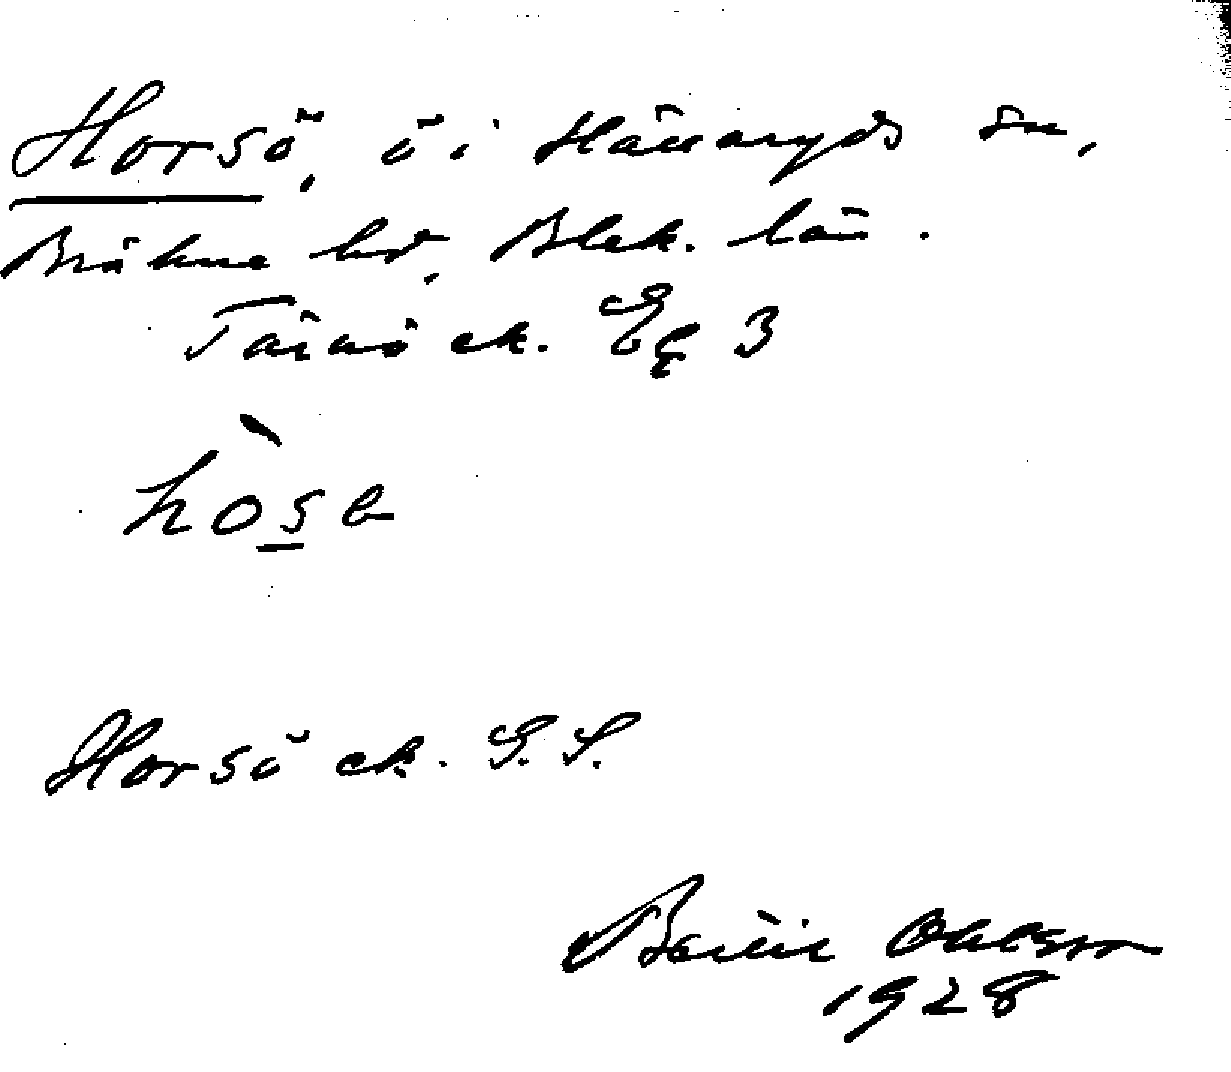 Horsö, ö i Hällaryds sn,
Bräkne hd, Blek. län.
Tärnö ek. Eg 3
hòse
Horsö ek. G.S.
Bertil Ohlsson
1928